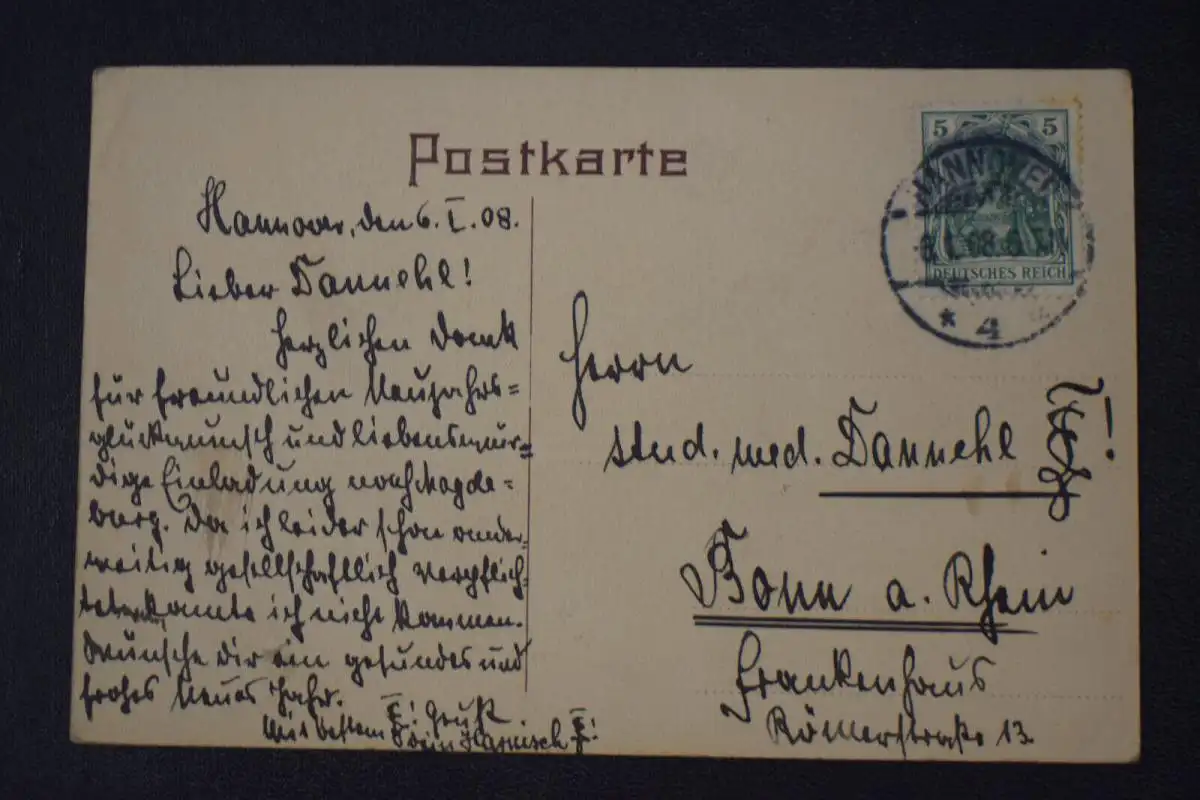 Postkarte
Hannover, den 6. I. 08.
Lieber Dannehl!
Herzlichen Dank
für freundlichen Neujahrs=
glückwunsch und liebenswür=
dige Einladung nach Magde=
burg. Da ich leider schon ander-
weitig gesellschaftlich verpflich-
tet, konnte ich nicht kommen.
Wünsche dir ein gesundes und
frohes neues Jahr.
Mit bestem Gruß
dein Harnisch
5 5
DEUTSCHES REICH
HANNOVER
* 4
Herrn
stud. med. Dannehl
Bonn a. Rhein
Frankenhaus
Römerstraße 13.